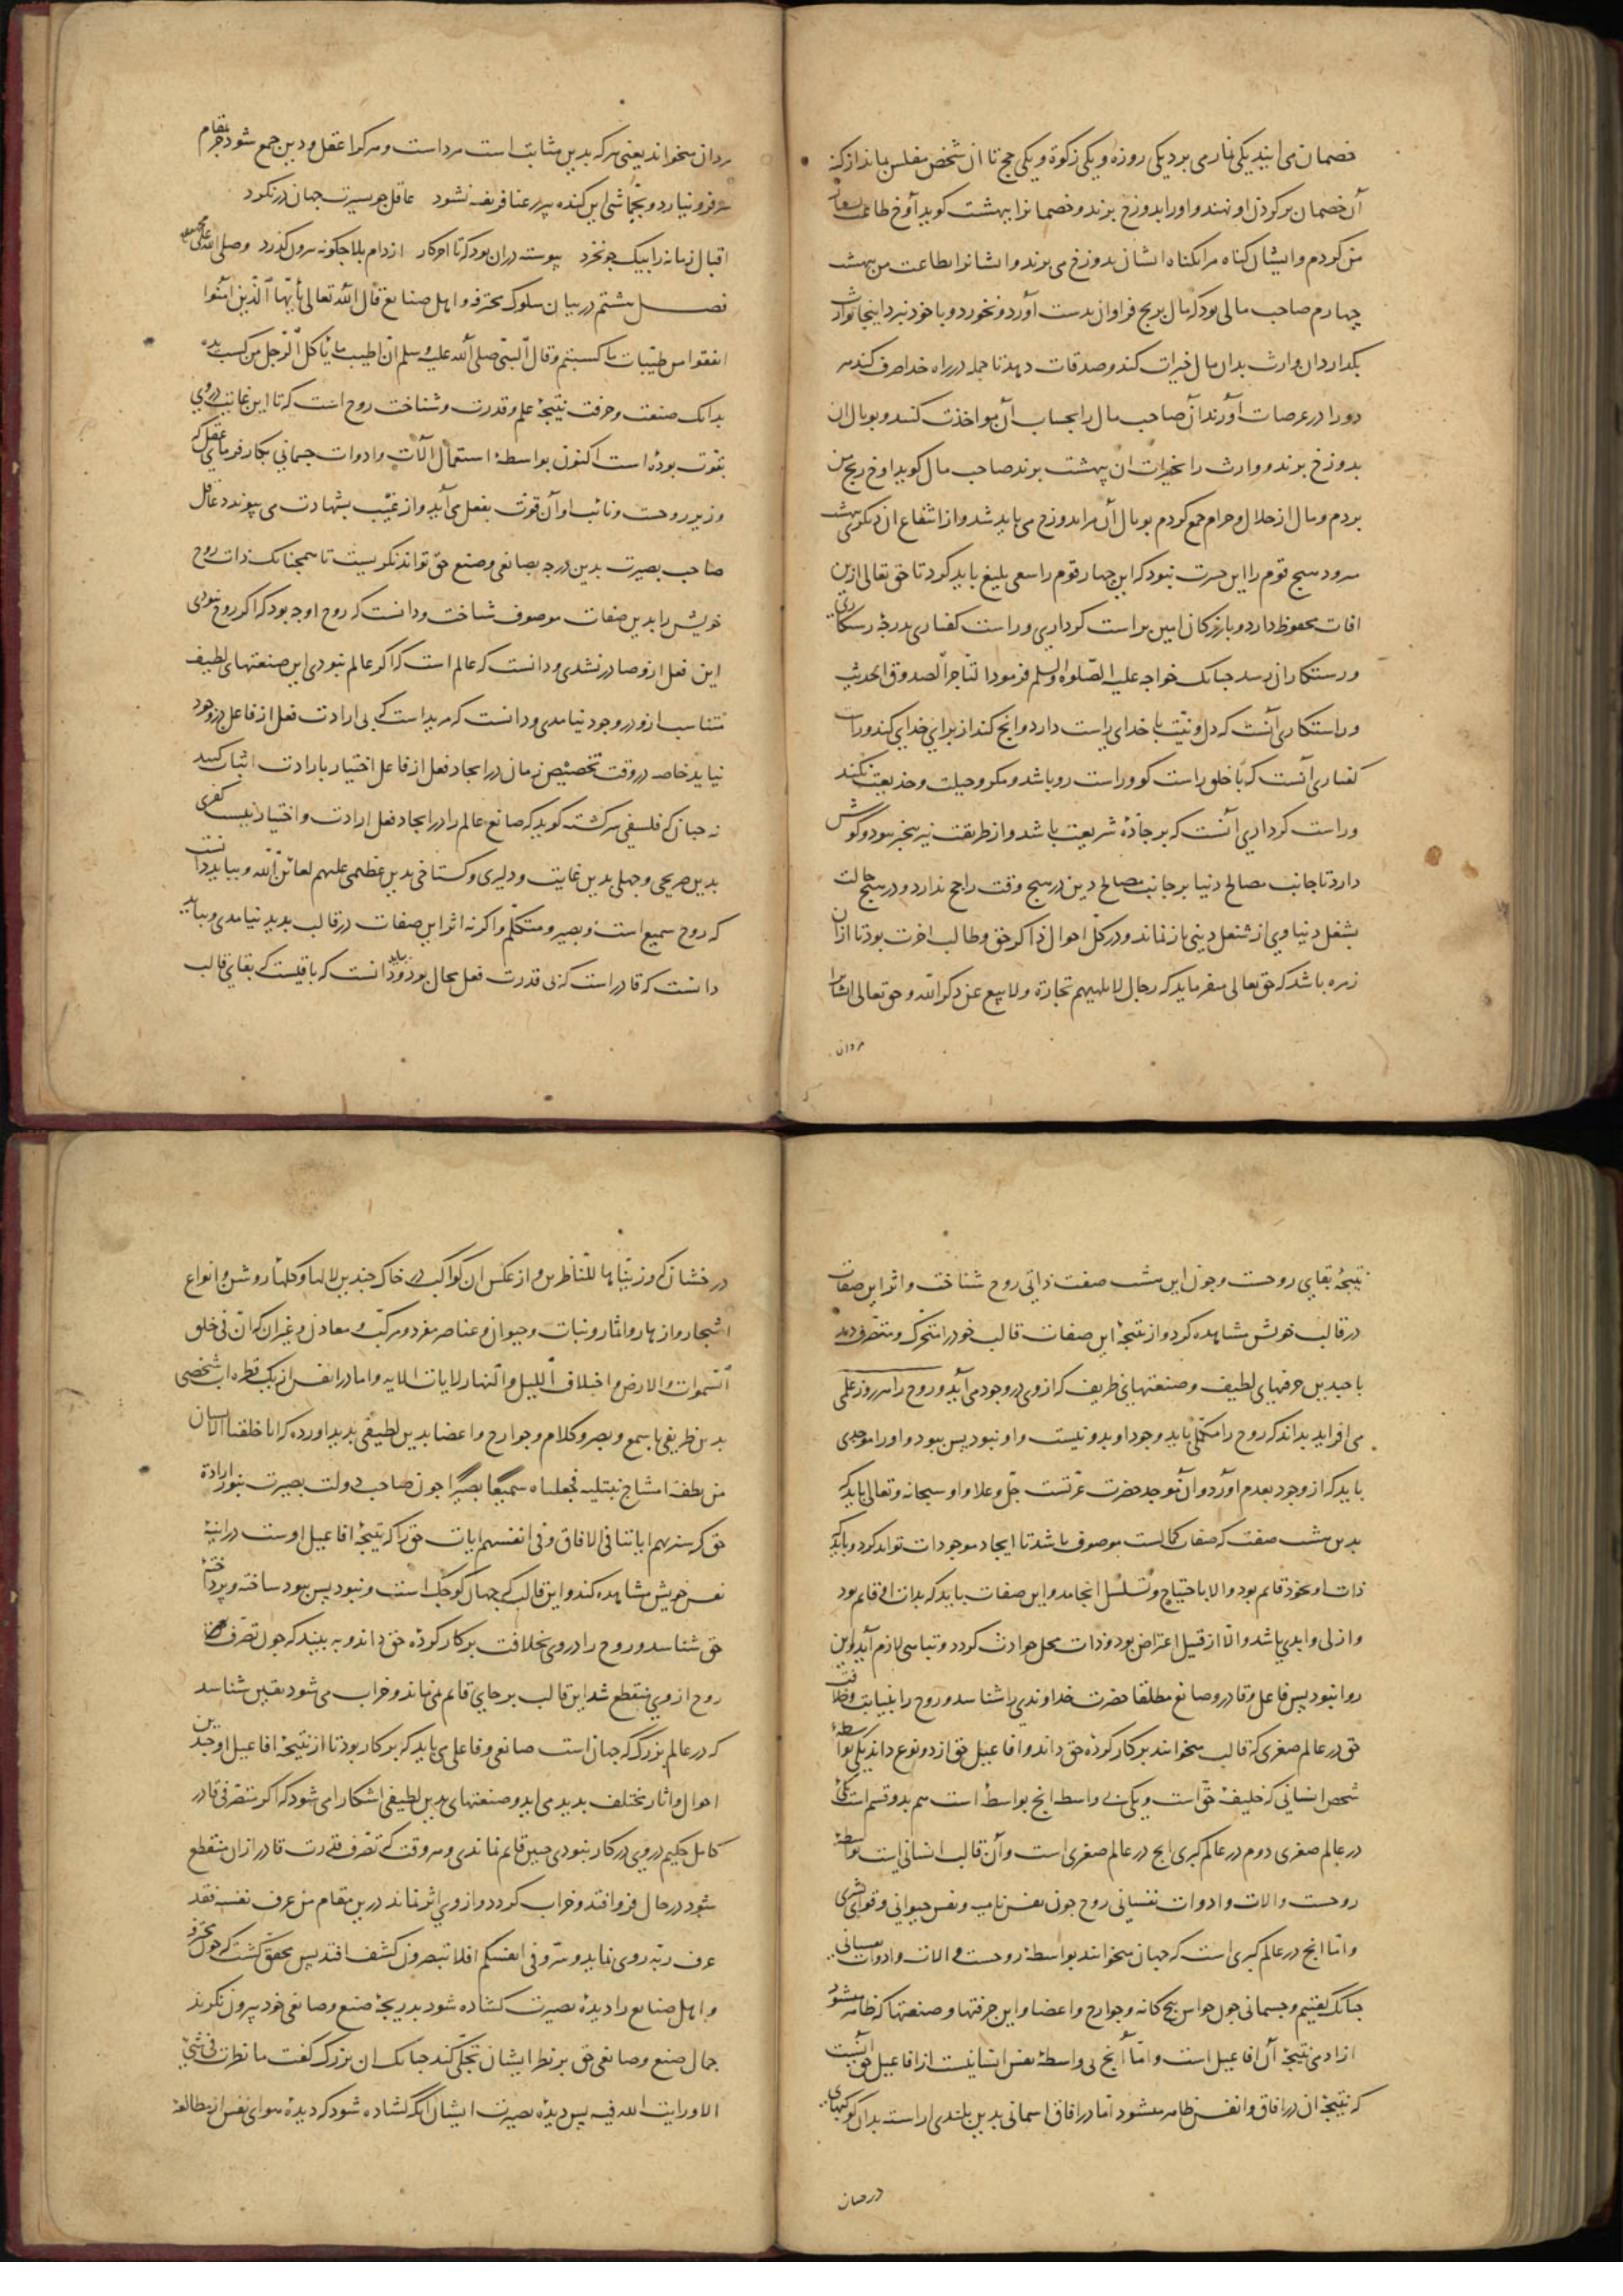 خصمان می‌ایند یکی نماز می برد یکی روزه و یکی زکوة و یکی حج تا ان شخص مفلس بماند از کنه
آن خصمان بر کردن او نهند و او را بدوزخ برند و خصمانرا ببهشت کوید آوخ طاعت
من کردم و ایشان کناه مرا بکناه ایشان بدوزخ می برند و ایشانرا بطاعت من ببهشت
چهارم صاحب مالی بود که مال برنج فراوان بدست آورد و نخورد و با خود نبرد اینجا بوارث
بکدارد ان وارث بدان مال خیرات کند و صدقات دهد تا جمله در راه خدا صرف کند هر
دو را در عرصات آورند آن صاحب مال را بحساب آن مواخذت کنند و بوبال ان
بدوزخ برند و وارث را بخیرات ان ببهشت برند صاحب مال کوید اوخ رنج من
بردم و مال از حلال و حرام جمع کردم بوبال آن مرا بدوزخ می باید شد و از انتفاع ان دیکری ببهشت
میرود هیچ قوم را این حسرت نبود که این چهار قوم را سعی بلیغ باید کرد تا حق تعالی ازین
افات محفوظ دارد و بازرکان امین براست کرداری و راست کفتاری بدرجهٔ رستکاری
و رستکاران رسد چنانک خواجه علیه الصلوه والسلم فرمود التاجر الصدوق الحدیث
و راستکاری آنست که دل و نیت با خدای راست دارد و انج کند از برای خدای کند و راست
کفتاری آنست که با خلق راست کو و راست رو باشد و مکر و حیلت و خدیعت نکند
و راست کرداری آنست که بر جادهٔ شریعت باشد و از طریقت نیز بیخبر نبود و کوش
دارد تا جانب مصالح دنیا بر جانب مصالح دین در هیچ وقت راجح ندارد و در هیچ حالت
بشغل دنیاوی از شغل دینی باز نماند و در کل احوال ذاکر حق و طالب اخرت بود تا ازان
زمره باشد که حق تعالی میفرماید که رجال لا تلهیهم تجارة ولا بیع عن ذکر الله و حق تعالی ایشانرا
مردان
مردان میخواند یعنی هر که بدین مثابت است مرد است و هر کرا عقل و دین جمع شود بمقام
سر فرو نیارد و بجماشی این کنده پیر رعنا فریفته نشود عاقل چو بسیرت جهان در نکرد
اقبال زمانه را بیک جو نخرد پیوسته دران بود که تا اخر کار از دام بلا چکونه بیرون کذرد وصلی الله علی محمد
فصل هشتم در بیان سلوک محترفه و اهل صنایع قال الله تعالی یا ایها الذین امنوا
انفقوا من طیبات ما کسبتم وقال النبی صلی الله علیه وسلم ان اطیب ما یأکل الرجل من کسب یده
بدانک صنعت و حرفت نتیجهٔ علم و قدرت و شناخت روح است که تا این غایت در وی
بقوت بوده است اکنون بواسطهٔ استعمال آلات و ادوات جسمانی بکار فرمای عقل که
وزیر روحست و نائب او آن قوت بفعل می آید و از غیب بشهادت می پیوندد عاقل
صاحب بصیرت بدین درجه بصانعی و صنع حق تواند نکریست تا همچنانک ذات روح
خویش را بدین صفات موصوف شناخت و دانست که روح او چه بود که اکر روح نبودی
این فعل ازو صادر نشدی و دانست که عالم است که اکر عالم نبودی این صنعتهای لطیف
متناسب ازو در وجود نیامدی و دانست که مرید است که بی ارادت فعل از فاعل در وجود
نیاید خاصه در وقت تخصیص زمان در ایجاد فعل از فاعل اختیار بارادت اثبات کنند
نه چنان که فلسفی سرکشته کوید که صانع عالم را در ایجاد فعل ارادت و اختیار نیست کفری
بدین صریحی و جهلی بدین غایت و دلیری و کستاخی بدین عظیمی علیهم لعائن الله و بباید دانست
که روح سمیع است و بصیر و متکلم و اکر نه اثر این صفات در قالب پدید نیامدی و بباید
دانست که قادر است که بی قدرت فعل محال بود و باید دانست که باقیست که بقای قالب
نتیجهٔ بقای روحست و چون این هشت صفت ذاتی روح شناخت و اثر این صفات
در قالب خویش مشاهده کرد و از نتیجهٔ این صفات قالب خود را متحرک و متصرف دید
با چندین حرفهای لطیف و صنعتهای ظریف که از وی در وجود می آید و روح را هر روز علمی
می افزاید بداند که روح را مکملی باید وجود او بدو نیست و او نبود پس ببود و او را موجدی
باید که از وجود بعدم آورد و آن موجد حضرت عزتست جل و علا و او سبحانه و تعالی باید که
بدین هشت صفت که صفات کمالست موصوف باشد تا ایجاد موجودات تواند کرد و باید که
ذات او بخود قایم بود و الا باحتیاج و تسلسل انجامد و این صفات باید که بذات او قایم بود
و ازلی و ابدی باشد و الا از قبیل اعراض بود و ذات محل حوادث کردد و تناهی لازم آید و این
روا نبود پس فاعل و قادر و صانع مطلقا حضرت خداوندی را شناسد و روح را بنیابت و خلافت
حق در عالم صغری که قالب میخوانند بر کار کردهٔ حق داند و افاعیل حق از دو نوع داند یکی بواسطهٔ
شخص انسانی که خلیفهٔ حق است و یکی بی واسطه انج بواسطه است هم بدو قسم است یکی
در عالم صغری دوم در عالم کبری انج در عالم صغری است و آن قالب انسانی است بواسطهٔ
روحست و الات و ادوات نفسانی روح چون نفس نامیه و نفس حیوانی و قوای بشری
و اما انج در عالم کبری است که جهان میخوانند بواسطهٔ روحست و الات و ادوات نفسانی
چنانک کفتیم و جسمانی چون حواس پنج کانه و جوارح و اعضا و این حرفتها و صنعتها که ظاهر میشود
از ادمی نتیجهٔ آن افاعیل است و اما آنج بی واسطهٔ نفس انسانیست از افاعیل حق آنست
که نتیجهٔ ان در افاق و انفس ظاهر میشود اما در افاق اسمانی بدین بلندی اراست بدان کوکبهای
درخشان
درخشان که و زیناها للناظرین و از عکس ان کواکب در خاک چندین لالها و کلها روشن و انواع
اشجار و ازهار و اثمار و نبات و حیوان و عناصر مفرد و مرکب و معادن و غیر ان که ان فی خلق
السموات والارض واختلاف اللیل والنهار لایات الایه و اما در انفس از یک قطره اب شخصی
بدین ظریفی با سمع و بصر و کلام و جوارح و اعضا بدین لطیفی پدید اورده که انا خلقنا الانسان
من نطفة امشاج نبتلیه فجعلناه سمیعا بصیرا چون صاحب دولت بصیرت بنور ارادة
حق که سنریهم ایاتنا فی الافاق وفی انفسهم ایات حق را که نتیجهٔ افاعیل اوست در اینهٔ
نفس خویش مشاهده کند و این قالب که جهان کوچک است و نبود پس ببود ساخته و پرداختهٔ
حق شناسد و روح را در وی بخلافت بر کار کردهٔ حق داند و به بیند که چون تصرف
روح از وی منقطع شد این قالب بر جای قایم نمی ماند و خراب می شود یقین شناسد
که در عالم بزرک که جهان است صانعی و فاعلی می باید که بر کار بود تا از نتیجهٔ افاعیل او چندین
احوال و اثار مختلف پدید می اید و صنعتهای بدین لطیفی اشکارا می شود که اکر متصرفی قادر
کامل حکیم در وی در کار نبودی چنین قایم نماندی و هر وقت که تصرف قدرت قادر ازان منقطع
شود در حال فرو افتد و خراب کردد و از وی اثر نماند درین مقام من عرف نفسه فقد
عرف ربه روی نماید و سر وفی انفسکم افلا تبصرون کشف افتد پس محقق کشت که چون محترفه
و اهل صنایع را دیدهٔ بصیرت کشاده شود بدریچهٔ صنع و صانعی خود بیرون نکرند
جمال صنع و صانعی حق بر نظر ایشان تجلی کند چنانک ان بزرک کفت ما نظرت فی شیئ
الا ورایت الله فیه پس دیدهٔ بصیرت ایشان انکه کشاده شود که دیدهٔ هوای نفس از مطالعهٔ